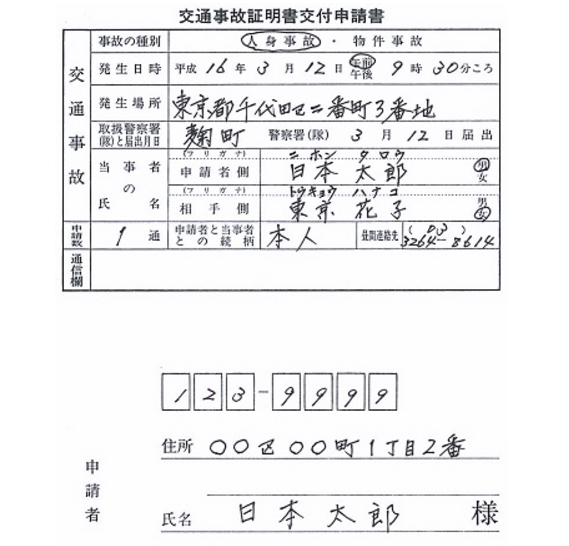 交通事故証明書交付申請書
交通事故
事故の種別 人身事故・物件事故
発生日時 平成 16 年 3 月 12 日 午前 午後 9 時 30 分ころ
発生場所 東京都千代田区二番町3番地
取扱警察署(隊)と届出月日 麹町 警察署(隊) 3 月 12 日 届出
当事者の氏名
(フリガナ) ニホン タロウ
申請者側 日本 太郎 男 女
(フリガナ) トウキョウ ハナコ
相手側 東京 花子 男 女
申請数 1 通 申請者と当事者との続柄 本人 昼間連絡先 (03) 3264-8614
通信欄
123-9999
申請者
住所 〇〇区〇〇町1丁目2番
氏名 日本太郎 様